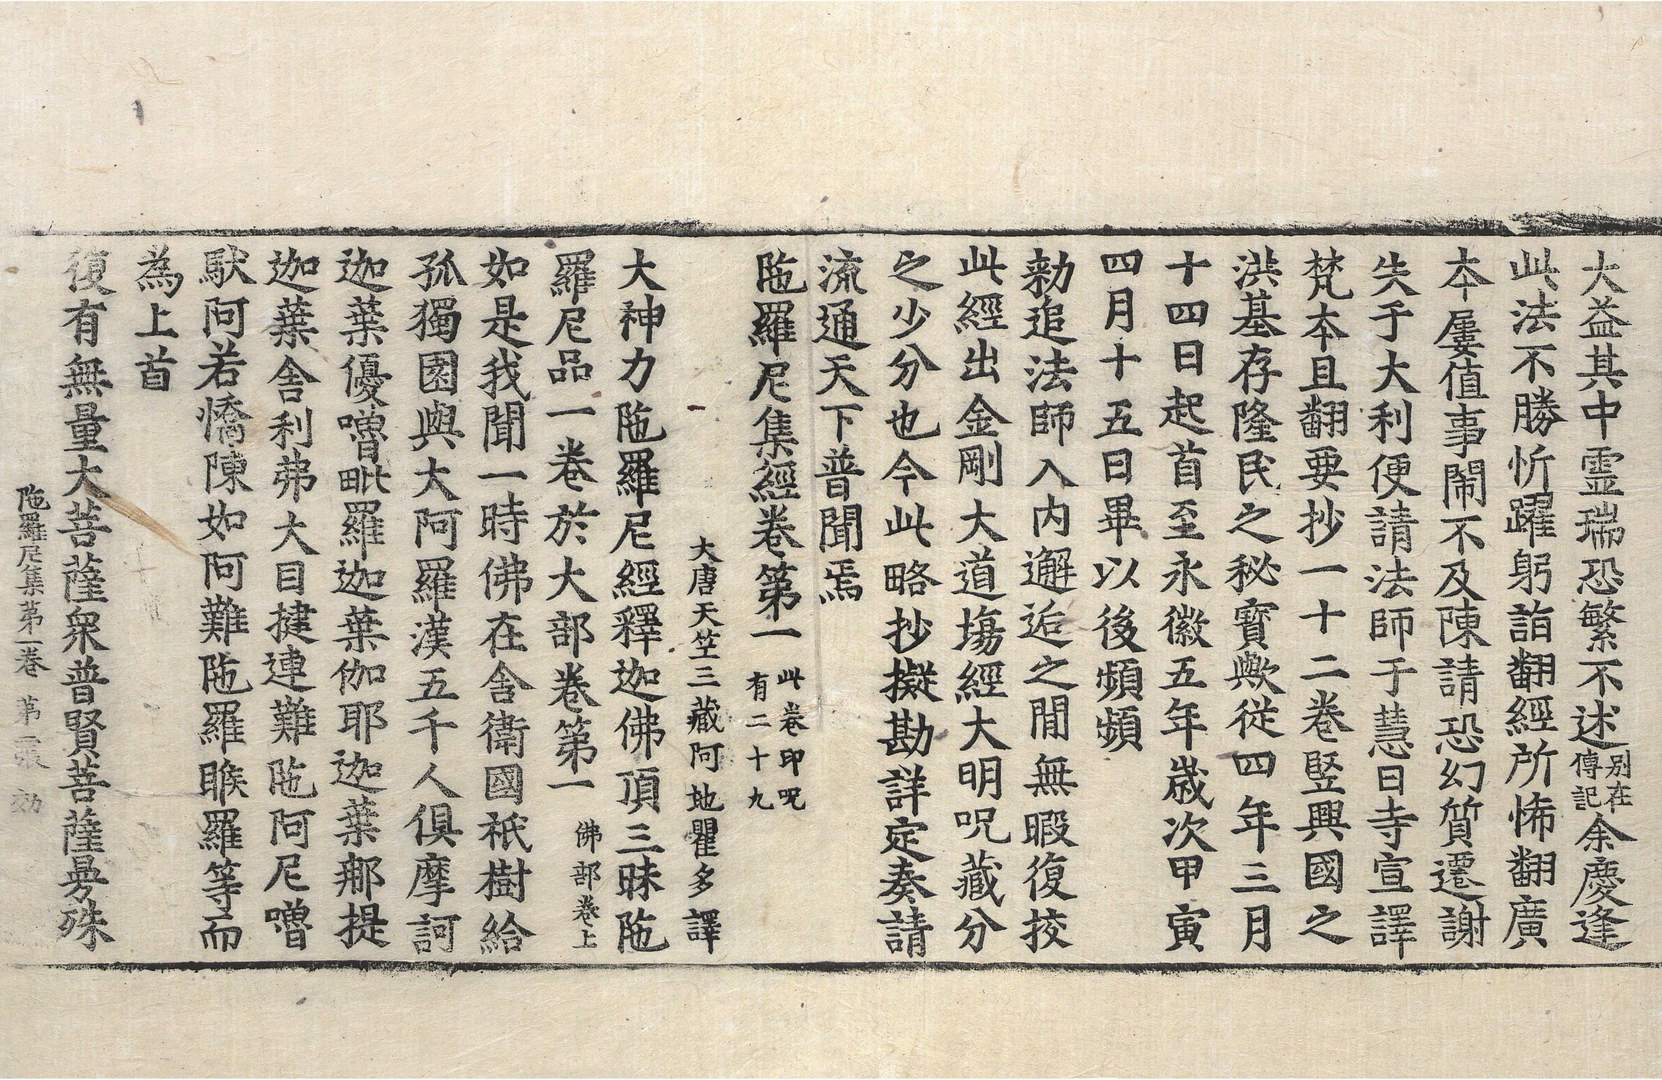 大益其中霊瑞恐繁不述別在傳記余慶逢
此法不勝忻躍躬詣翻經所怖翻廣
本屢值事鬧不及陳請恐幻質遷謝
失于大利便請法師于慧日寺宣譯
梵本且翻要抄一十二卷竪興國之
洪基存隆民之秘寳歟從四年三月
十四日起首至永徽五年歲次甲寅
四月十五日畢以後頻頻
勑追法師入内邂逅之閒無暇復挍
此經出金剛大道塲經大明呪藏分
之少分也今此略抄擬勘詳定奏請
流通天下普聞焉
陁羅尼集經卷第一 此卷印呪有二十九
大唐天竺三藏阿地瞿多譯
大神力陁羅尼經釋迦佛頂三昧陁
羅尼品一卷於大部卷第一 佛部卷上
如是我聞一時佛在舍衛國祇樹給
孤獨園與大阿羅漢五千人俱摩訶
迦葉優嚕毗羅迦葉伽耶迦葉那提
迦葉舍利弗大目揵連難陁阿尼嚕
馱阿若憍陳如阿難陁羅睺羅等而
為上首
復有無量大菩薩衆普賢菩薩曼殊
陁羅尼集第一卷 第 張 効